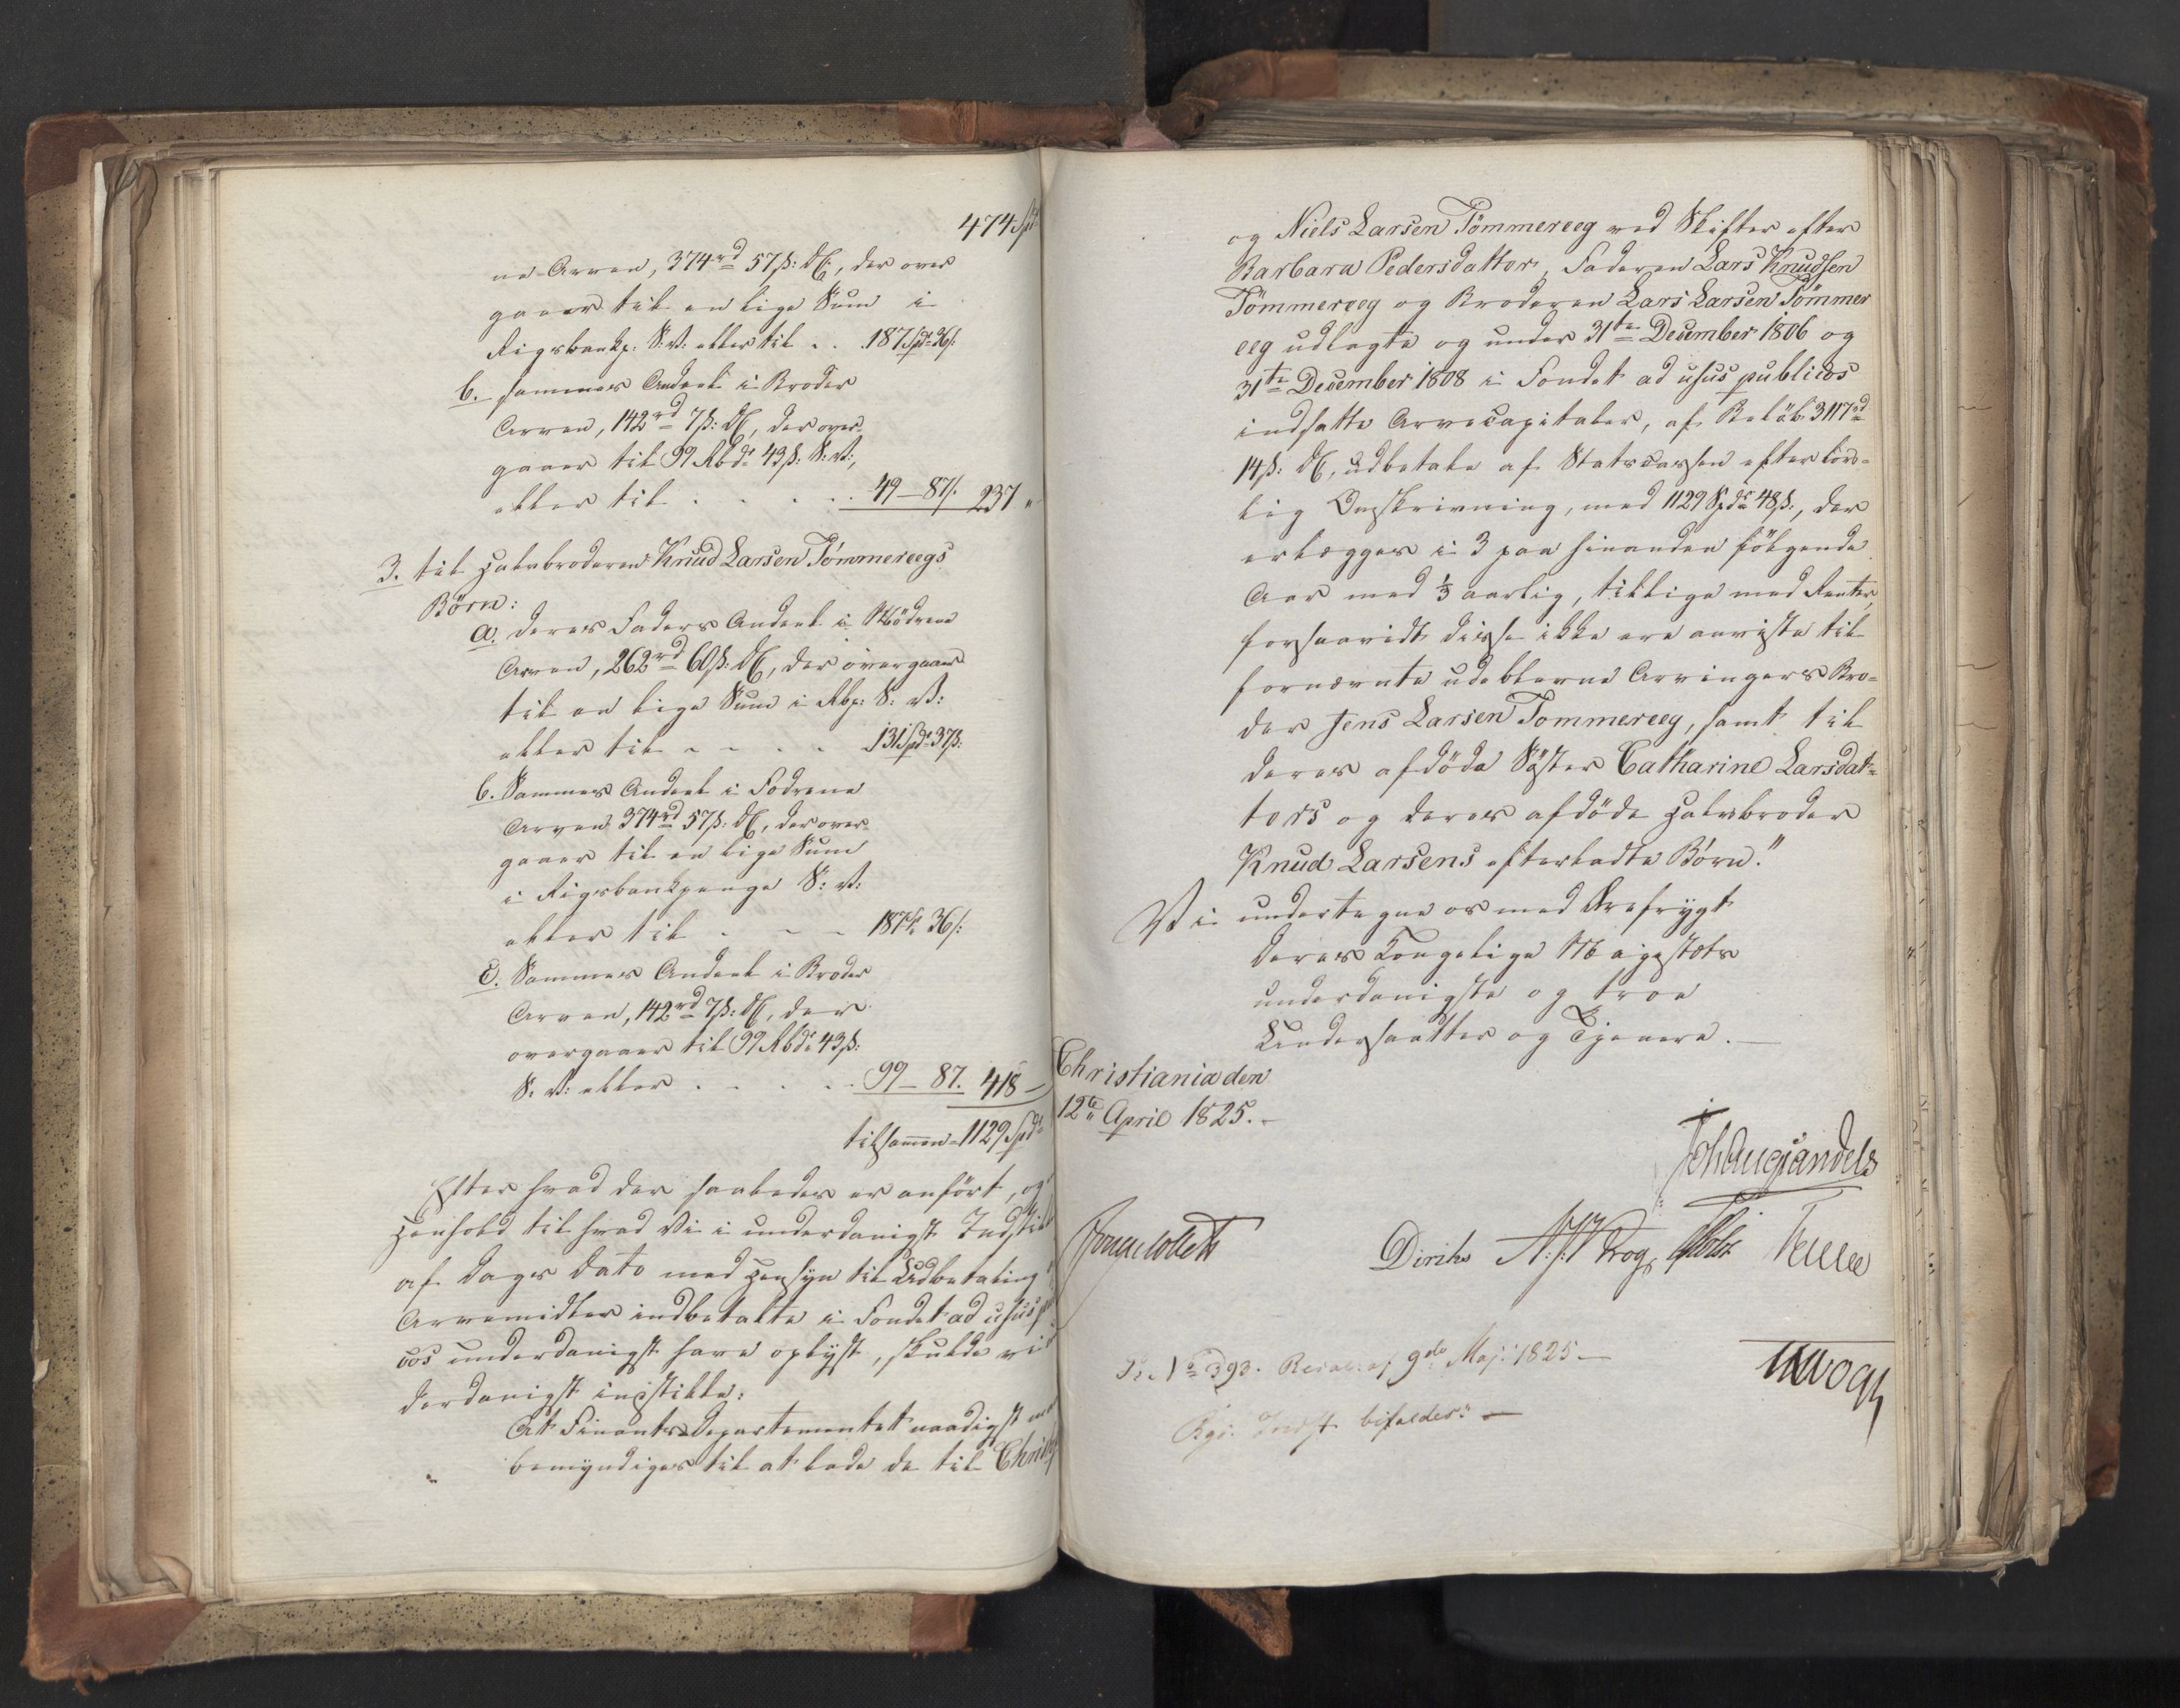 474 Spd
ne Arven, 374 rd 57 ß: DC, der over
gaaer til en lige Sum i
Rigsbankp: S: V: eller til . . 187 Spd 36 ß:
b. sammes Andeel i Broder
Arven, 142 rd 7 ß: DC, der over-
gaaer til 99 Rbd 43 ß: S: V:,
eller til . . . . 49 — 87 ß. 237 "
3. til Halvbroderen Knud Larsen Tömmereegs
Börn:
a. deres Faders Andeel i Mödrene
Arven, 262 rd 60 ß: DC, der overgaaer
til en lige Sum i Rbp: S: V:
eller til - - - . 131 Spd 37 ß:
b. Sammes Andeel i Fædrene
Arven 374 rd 57 ß: DC, der over-
gaaer til en lige Sum
i Rigsbankpenge S: V:
eller til . - - 187 Sp 36 ß:
c. Sammes Andeel i Broder
Arven, 142 rd 7 ß: DC, der
overgaaer til 99 Rbd 43 ß:
S: V: eller . . . . . 99 — 87. 418 —
tilsammen - 1129 Spd
Efter hvad der saaledes er anfört, og i
Henhold til hvad Vi i underdanigst Indstill
af Dags Dato med Hensyn til Udbetaling
Arvemidler indbetalte i Fondet ad usus
cos underdanigst have oplyst, skulde vi
derdanigst indstille:
At Finants-Departementet naadigst
bemyndiges til at lade de til Christ
og Niels Larsen Tömmereeg ved Skifter efter
Barbara Pedersdatter, Faderen Lars Knudsen
Tömmereeg og Broderen Lars Larsen Tömmer
eeg udlagte og under 31te December 1806 og
31te December 1808 i Fondet ad usus publicos
indsatte Arvecapitaler, af Belöb 3117 rd
14 ß: DC, udbetale af Statscassen efter lov-
lig Omskrivning, med 1129 Spdr 48 ß., der
erlægges i 3 paa hinanden fölgende
Aar med 1/3 aarlig, tillige med Renter,
forsaavidt disse ikke ere anviste til
fornævnte udeblevne Arvingers Bro-
der Jens Larsen Tommereeg, samt til
deres afdöde Söster Catharine Larsdat-
ters og deres afdöde Halvbroder
Knud Larsens efterladte Börn."
Vi undertegne os med Ærefrygt
Deres Kongelige Majestæts
underdanigste og troe
Undersaatter og Tjenere. —
Christiania den
12te April 1825. -
Joh Aug Sandels
Jonas Collett Diriks N: J: Krog Holst
No 393. Resol: af 9de Maj: 1825 —
MWogt
Rgs: Indst. bifaldes: —